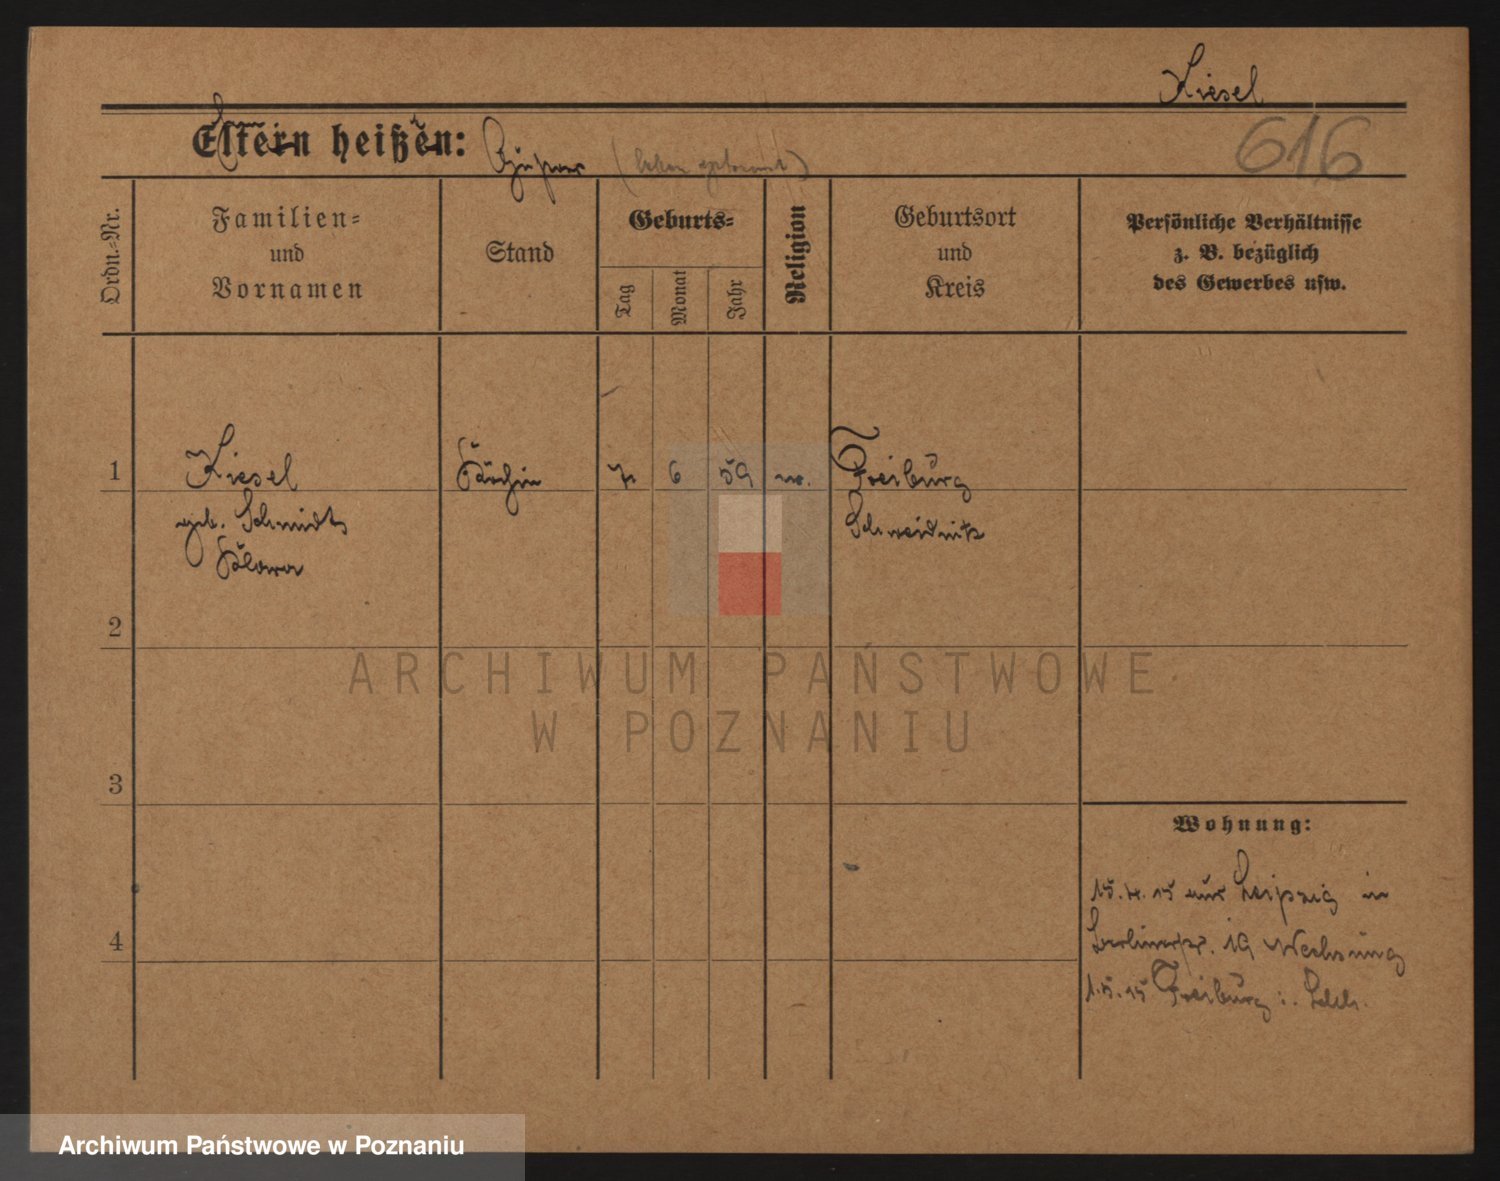 Kiesel
616
Eltern heißen:
Ordn.=Nr.
Familien=
und
Vornamen
Stand
Geburts=
Tag
Monat
Jahr
Religion
Geburtsort
und
Kreis
Persönliche Verhältnisse
z. B. bezüglich
des Gewerbes usw.
1
Kiesel
geb. Schmidt
Köchin
6
59
Freiburg
Schweidnitz
2
3
4
Wohnung:
aus Leipzig in
Berlinerstr. 19
Freiburg i. Schl.
ARCHIWUM PAŃSTWOWE
W POZNANIU
Archiwum Państwowe w Poznaniu